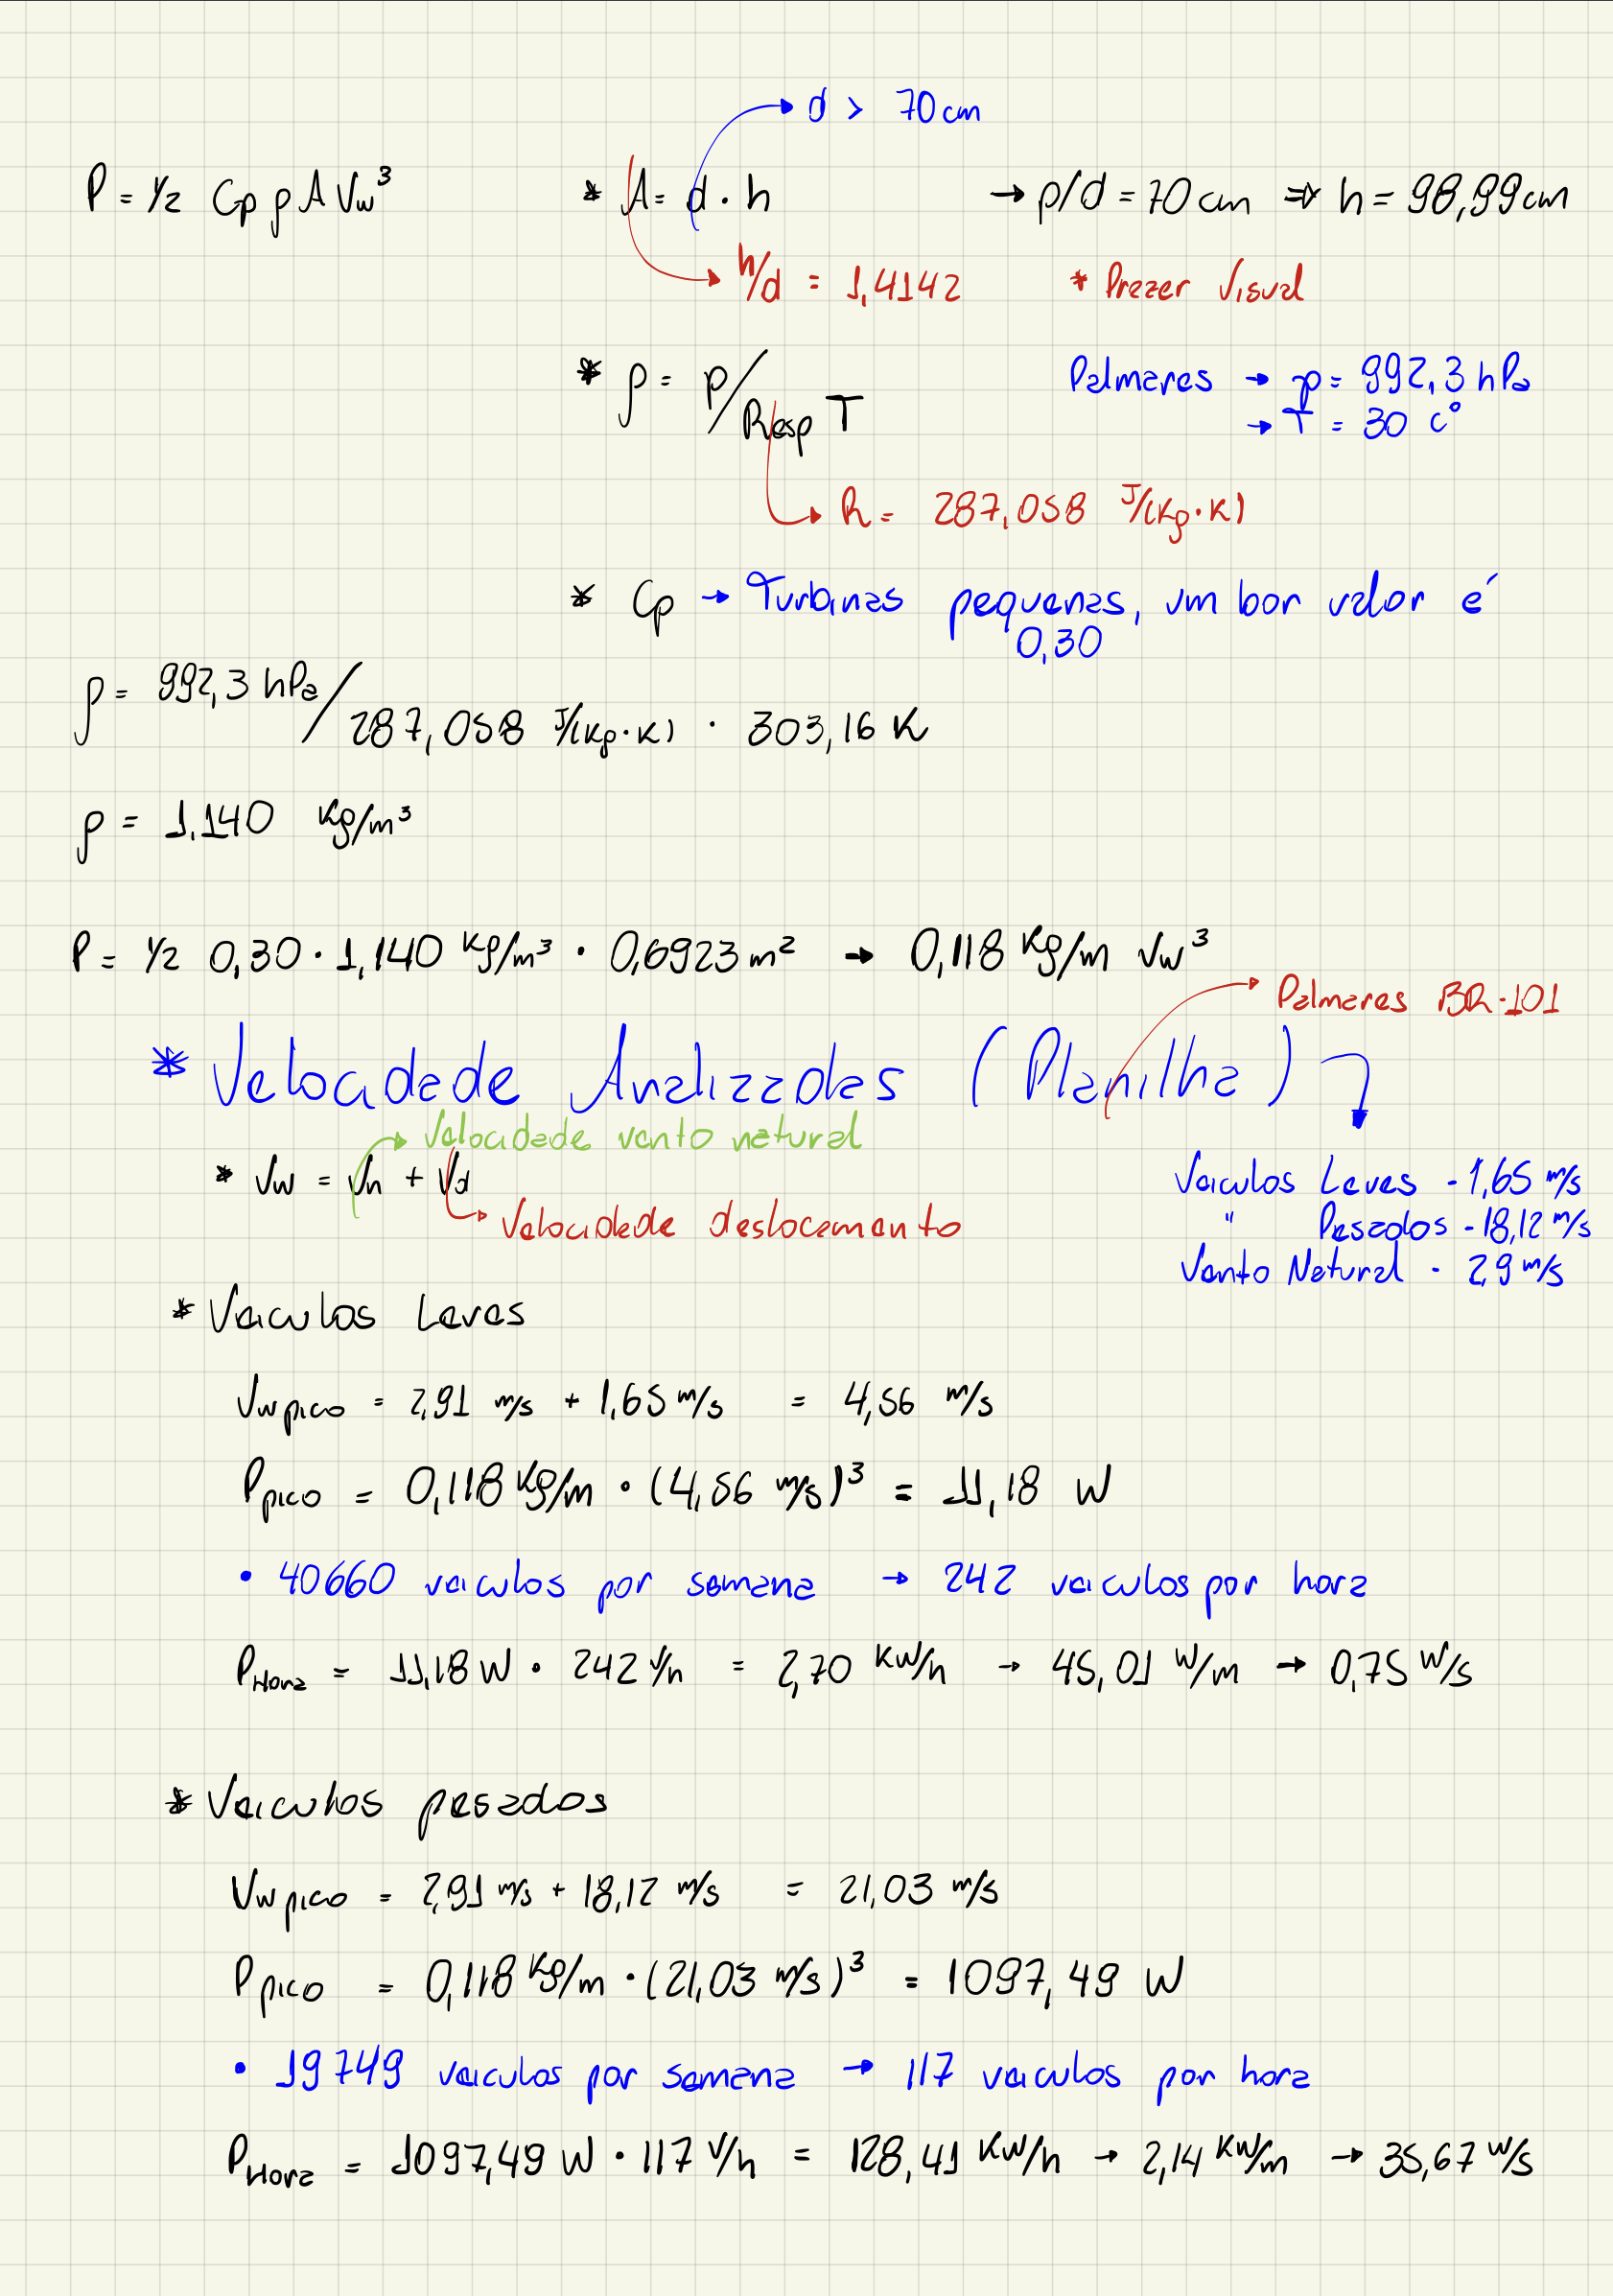 d > 70 cm
P = 1/2 Cp ρ A Vw³ * A = d · h → p/d = 70 cm ⇒ h = 98,99 cm
h/d = 1,4142 * Prazer Visual
* ρ = p/Resp T Palmares → p = 992,3 hPa
→ T = 30 C°
R = 287,058 J/(Kg·K)
* Cp → Turbinas pequenas, um bor valor é
0,30
ρ = 992,3 hPa/287,058 J/(Kg·K) · 303,16 K
ρ = 1,140 Kg/m³
P = 1/2 0,30 · 1,140 Kg/m³ · 0,6923 m² → 0,118 Kg/m Vw³
Palmares BR-101
* Velocidade Analizadas (Planilha)
Velocidade vento natural
* Vw = Vn + Vd Veiculos Leves - 1,65 m/s
Velocidade deslocamento " Pesados - 18,12 m/s
Vento Natural - 2,9 m/s
* Veiculos Leves
Vw pico = 2,91 m/s + 1,65 m/s = 4,56 m/s
P pico = 0,118 Kg/m · (4,56 m/s)³ = 11,18 W
• 40660 veiculos por semana → 242 veiculos por hora
P Hora = 11,18 W · 242 v/h = 2,70 KW/h → 45,01 W/m → 0,75 W/s
* Veiculos pesados
Vw pico = 2,91 m/s + 18,12 m/s = 21,03 m/s
P pico = 0,118 Kg/m · (21,03 m/s)³ = 1097,49 W
• 19749 veiculos por semana → 117 veiculos por hora
P Hora = 1097,49 W · 117 v/h = 128,41 KW/h → 2,14 KW/m → 35,67 W/s